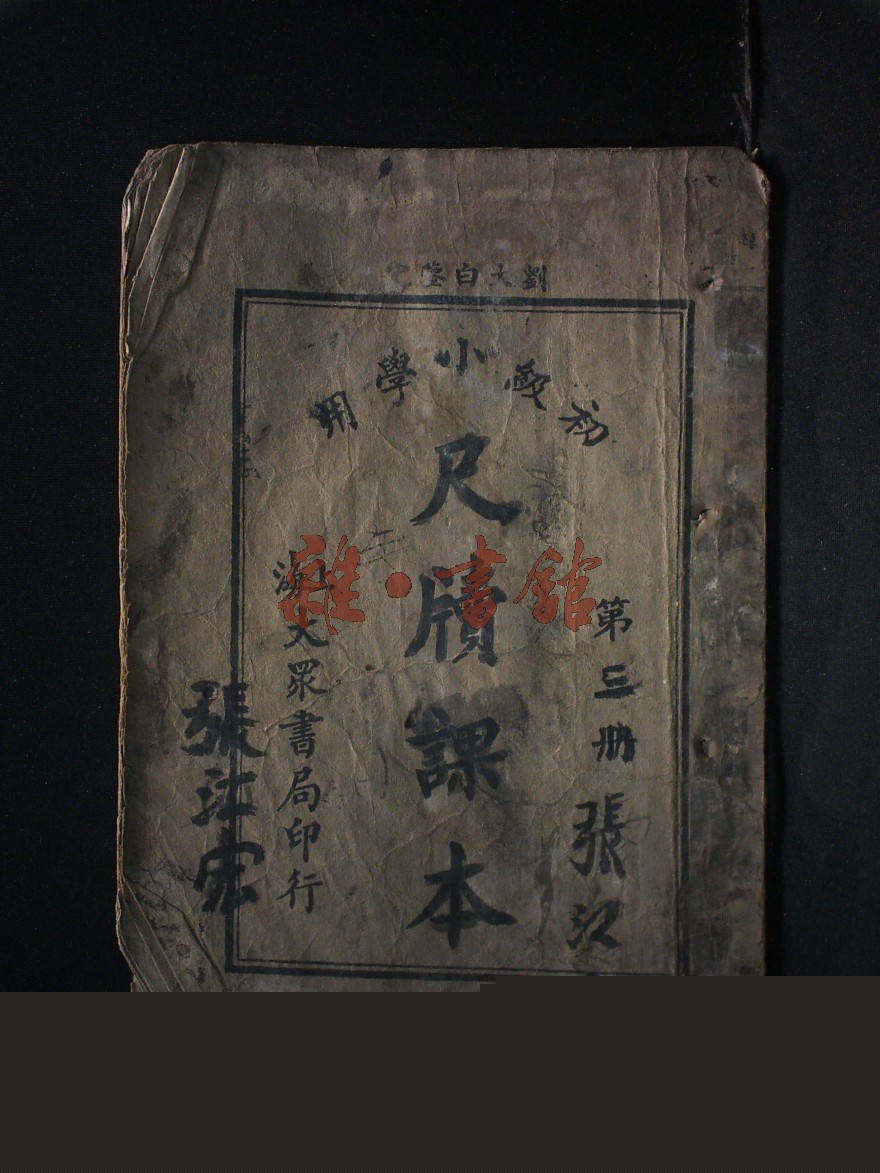 劉大白鑒定
初級小學用
尺牘課本
第三册
張江
上海大眾書局印行
張江宏
雜·書館